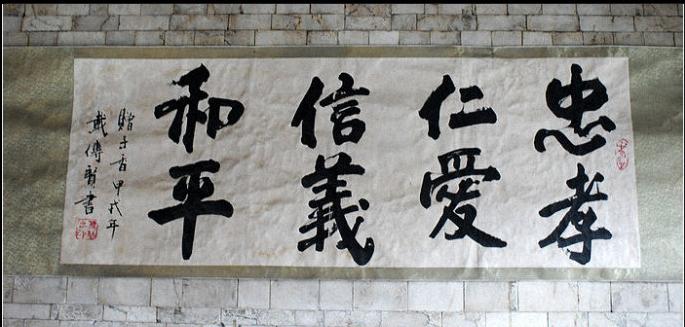 忠孝
仁愛
信義
和平
贈子香甲戌年
戴傳賢書